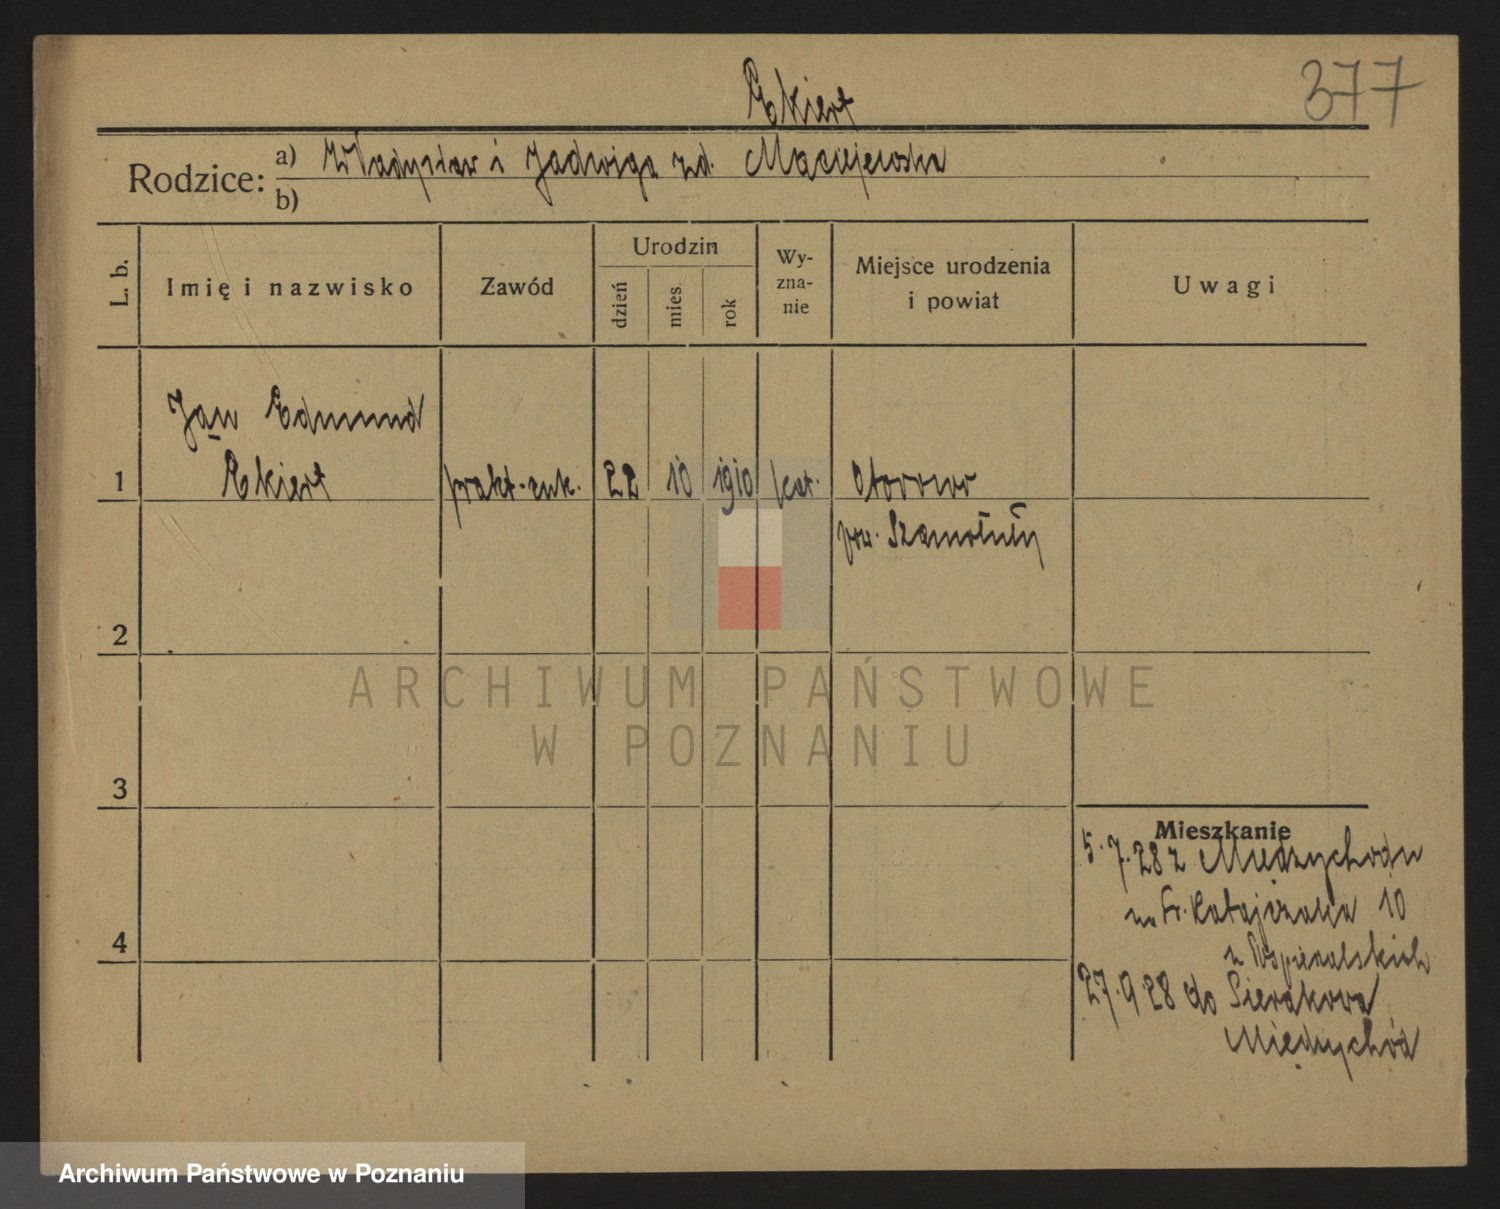 377
Ekiert
Rodzice: a) Władysław i Jadwiga zd. Maciejewska
b)
L. b.
Imię i nazwisko
Zawód
Urodzin
dzień
mies.
rok
Wy-
zna-
nie
Miejsce urodzenia
i powiat
Uwagi
Jan Edmund
1 Ekiert prakt. cuk. 22 10 1910 kat. Otorowo
pow. Szamotuły
2
ARCHIWUM PAŃSTWOWE
W POZNANIU
3
Mieszkanie
5.7.28 z Międzychodu
na Fr. Ratajczaka 10
u
4
27.9 28 do Sierakowa
Międzychód
Archiwum Państwowe w Poznaniu